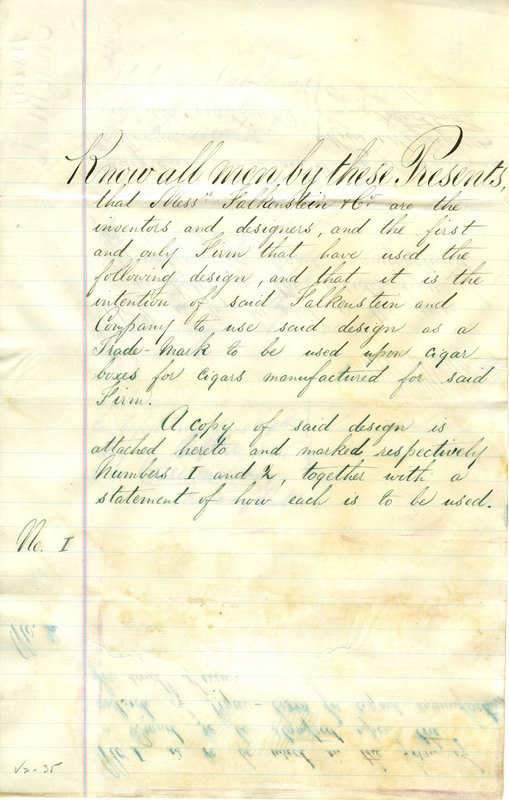 Know all men by these Presents,
that Mess.rs Falkenstein & Co. are the
inventors and designers, and the first
and only Firm that have used the
following design, and that it is the
intention of said Falkenstein and
Company to use said design as a
Trade-Mark to be used upon cigar
boxes for cigars manufactured for said
Firm.
A copy of said design is
attached hereto and marked respectively
Numbers 1 and 2, together with a
statement of how each is to be used.
No. 1